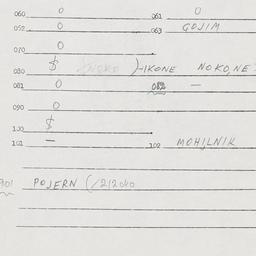 060 0 061 0
052 0 063 GOJIM
070 0
080 $ )-IKONE NOKO, NE
081 0 082 —
090 0
100 $
101 — 102 MOHILNIK
901 POJERN